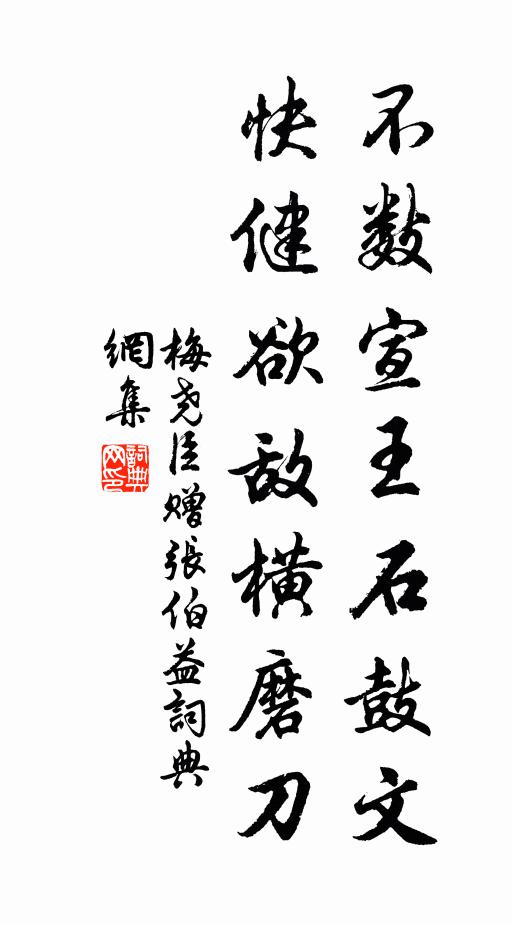 不数宣王石鼓文
快健欲敌横磨刀
梅尧臣赠張伯益詞典
網集
詞典
网印